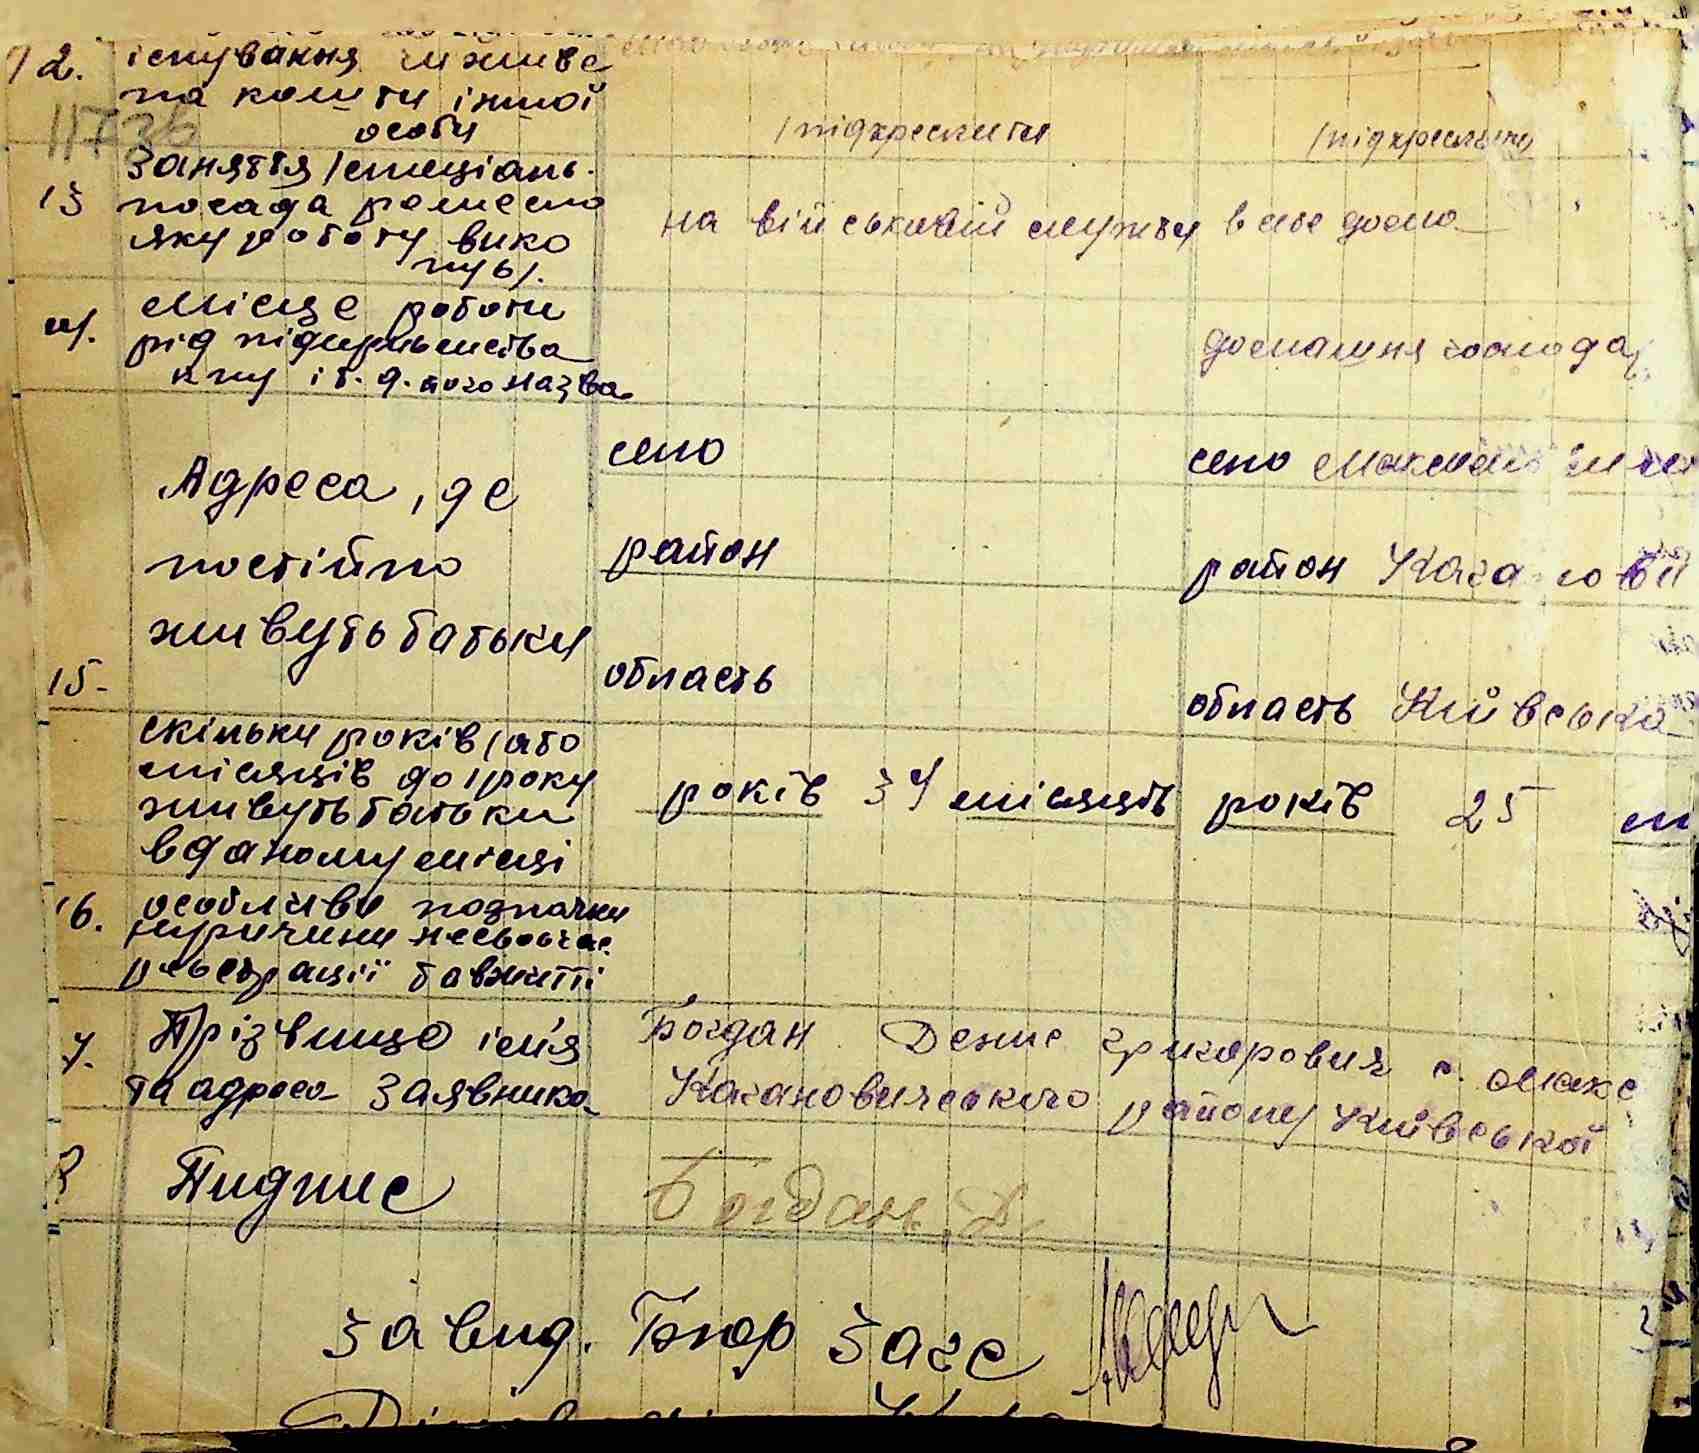 12. існування чи живе
на кошти іншої
особи
/підкреслити
/підкреслити
1173б
Заняття /спеціаль.
13 посада ремесло
яку роботу вико
нує/.
на військовій службі
в себе дома
14. Місце роботи
рід підприємства
і т. д. його назва
домашня господар
Адреса, де
постійно
живуть батьки
15.
село
район
область
село
район Кагановичі
область Київська
скільки років /або
місяців до 1 року
живуть батьки
в даному місці
років 34 місяців
років 25 м
16. особливі позначки
/причини несвоєчас.
реєстрації
7. Прізвище ім'я
та адреса Заявника
Богдан Денис Григорович с.
Кагановичського району Київської
Пидпис
Богдан Д.
Завид. Бюр Загс